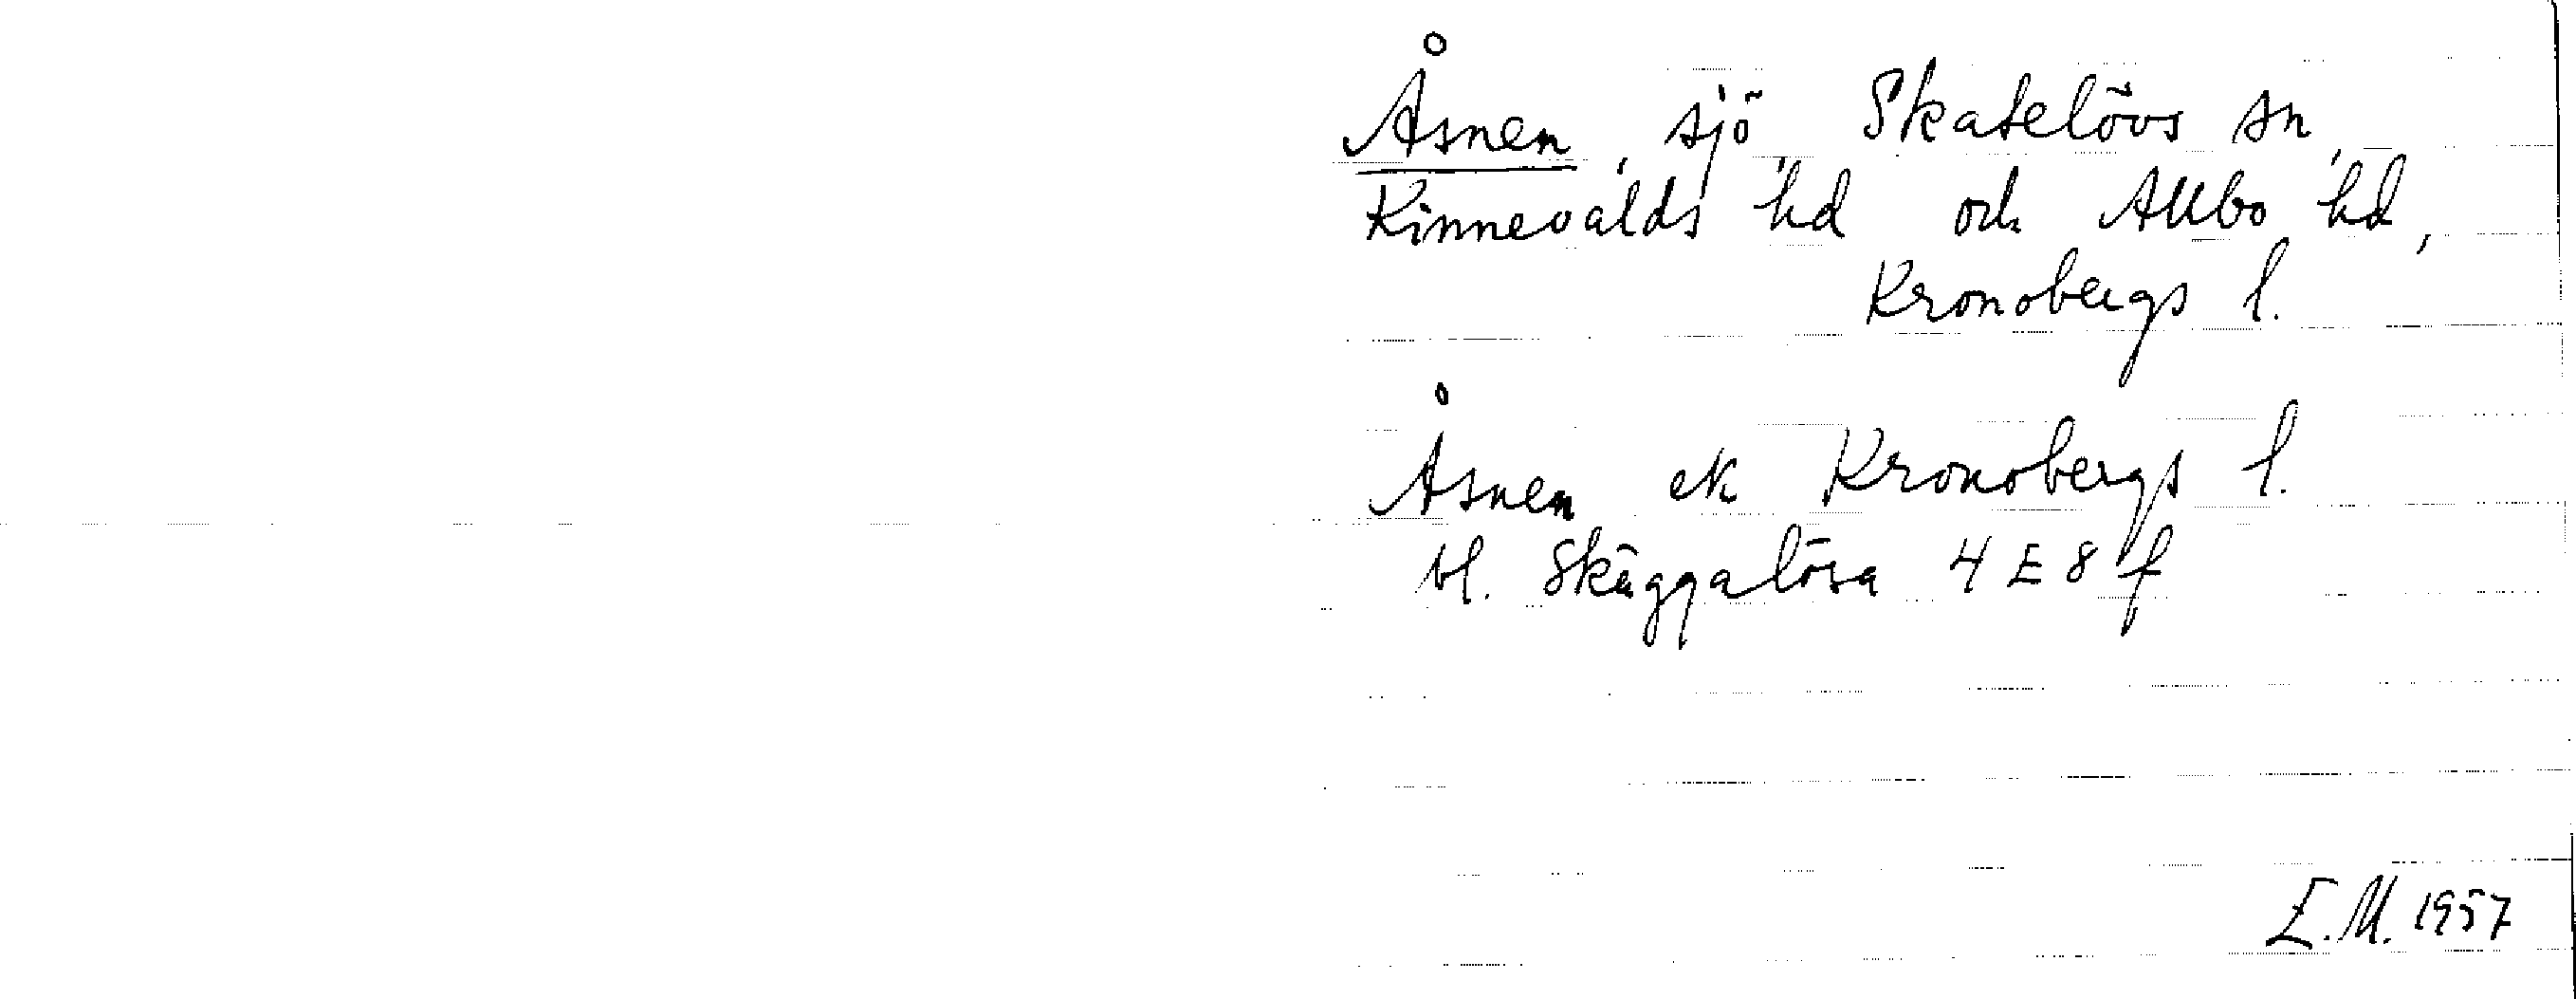 Åsnen, sjö, Skatelövs sn,
Kinnevalds hd och Allbo hd,
Kronobergs l.
Åsnen ek Kronobergs l.
bl. Skäggalösa 4 E 8 f
E.M. 1957